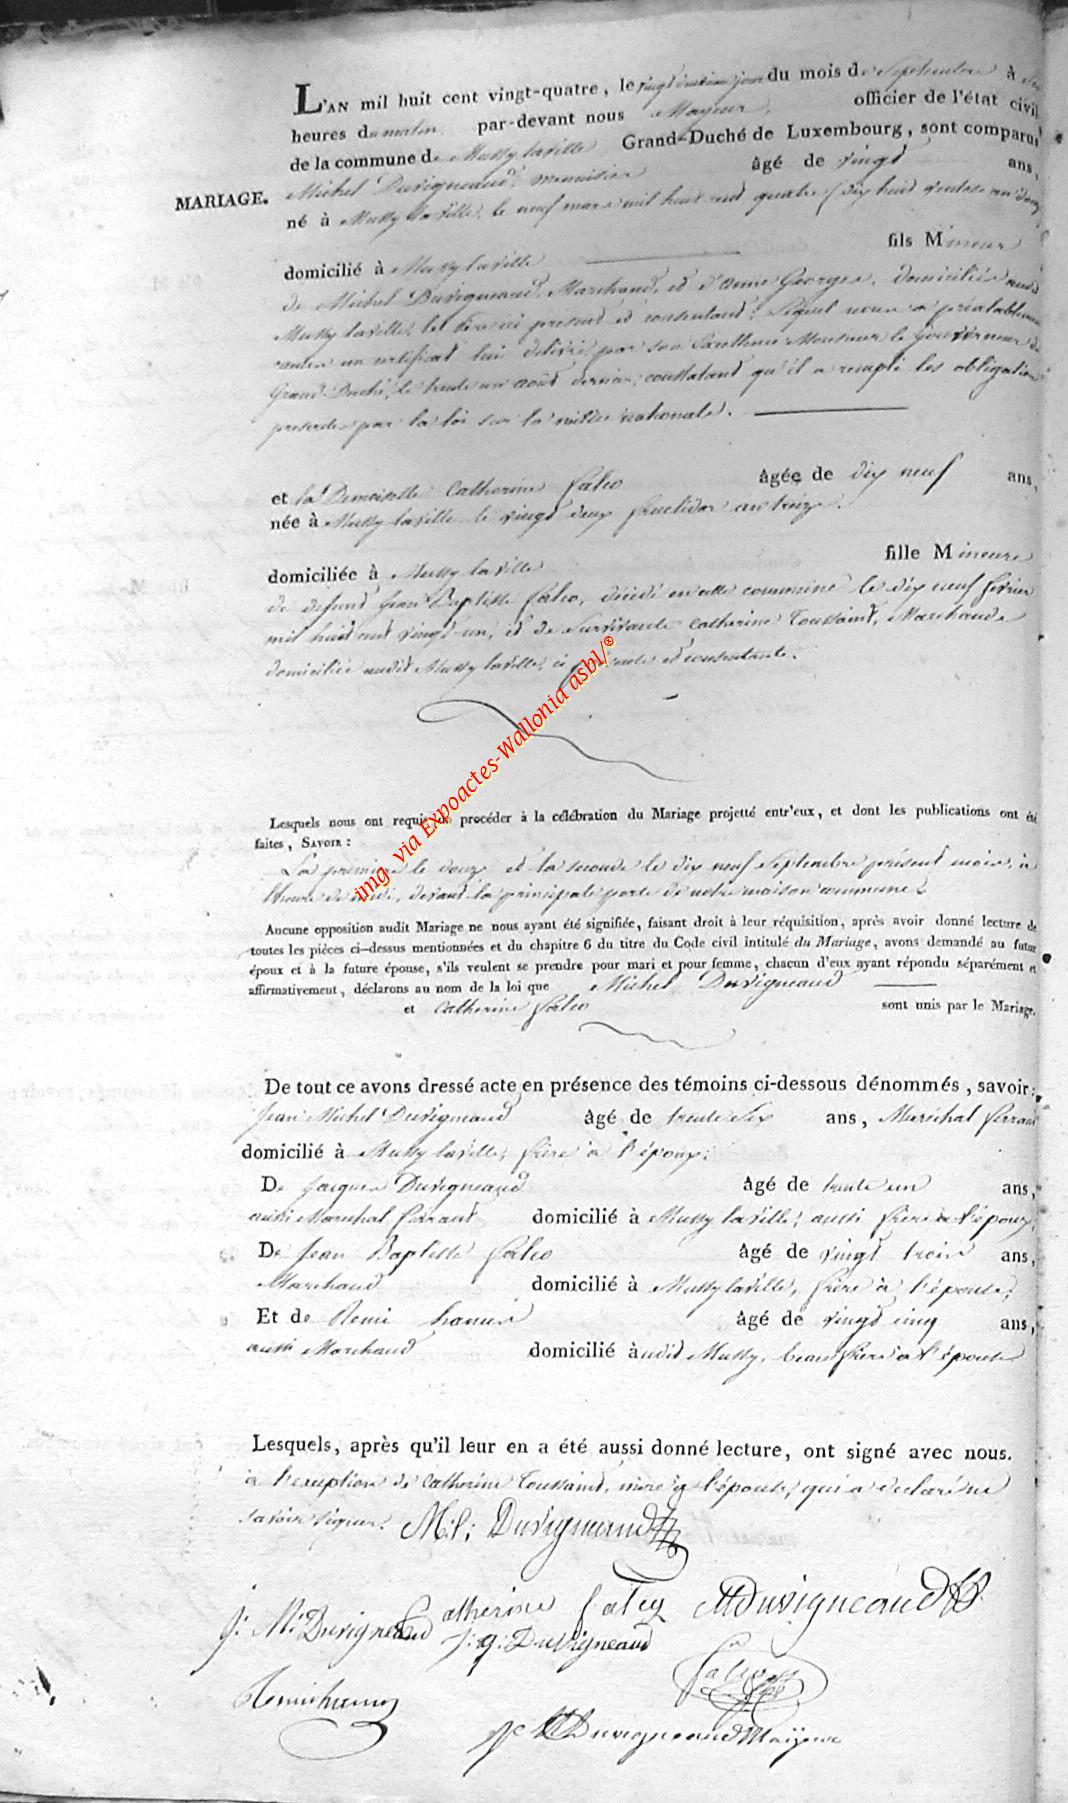 L'AN mil huit cent vingt-quatre, le vingt du mois de Septembre à
heures du matin par-devant nous Mayeur, officier de l'état civil
de la commune de Mussy laville Grand-Duché de Luxembourg, sont comparus
MARIAGE.
Michel Duvigneaud, menuisier âgé de vingt ans,
né à Mussy laville, le neuf mars mil huit cent quatre (dix huit ventose an douze
domicilié à Mussy laville fils Mineur
de Michel Duvigneaud, Marchand, et d'Anne Georges, domiciliés audit
Mussy laville, le ici présent et consentant; lequel nous a préalablement
un certificat lui délivré par son Excellence Monsieur le Gouverneur du
Grand-Duché, le trente un août dernier, constatant qu'il a rempli les obligations
prescrites par la loi sur la milice nationale.
et la Demoiselle Catherine âgée de dix neuf ans,
née à Mussy laville le vingt deux fructidor an treize.
domiciliée à Mussy laville fille Mineure
de defunt Jean Baptiste décédé en cette commune le dix neuf février
mil huit cent vingt-un, et de Survivante Catherine Toussaint, Marchande
domiciliée audit Mussy laville, ici présente et consentante.
img via Expoactes-Wallonia asbl/®
Lesquels nous ont requis de procéder à la célébration du Mariage projetté entr'eux, et dont les publications ont été
faites, SAVOIR :
La première le douze et la seconde le dix neuf Septembre présent mois, à
l'heure de midi, devant la principale porte de notre maison commune.
Aucune opposition audit Mariage ne nous ayant été signifiée, faisant droit à leur réquisition, après avoir donné lecture de
toutes les pièces ci-dessus mentionnées et du chapitre 6 du titre du Code civil intitulé du Mariage, avons demandé au futur
époux et à la future épouse, s'ils veulent se prendre pour mari et pour femme, chacun d'eux ayant répondu séparément et
affirmativement, déclarons au nom de la loi que Michel Duvigneaud
et Catherine sont unis par le Mariage.
De tout ce avons dressé acte en présence des témoins ci-dessous dénommés, savoir :
Jean Michel Duvigneaud âgé de trente six ans, Maréchal ferrant
domicilié à Mussy laville, frère à l'époux;
De Jacques Duvigneaud âgé de trente un ans,
aussi Marechal ferrant domicilié à Mussy laville, aussi frère à l'époux,
De Jean Baptiste âgé de vingt trois ans,
Marchand domicilié à Mussy laville, frère à l'épouse,
Et de Remi âgé de vingt cinq ans,
aussi Marchand domicilié audit Mussy, beau frère à l'épouse
Lesquels, après qu'il leur en a été aussi donné lecture, ont signé avec nous.
à l'exception de Catherine Toussaint, mère à l'épouse, qui a declaré ne
savoir signer. M.l: Duvigneaud
Catherine MDuvigneaud
J: M: Duvigneaud J: g: Duvigneaud
Duvigneaud Maijeur